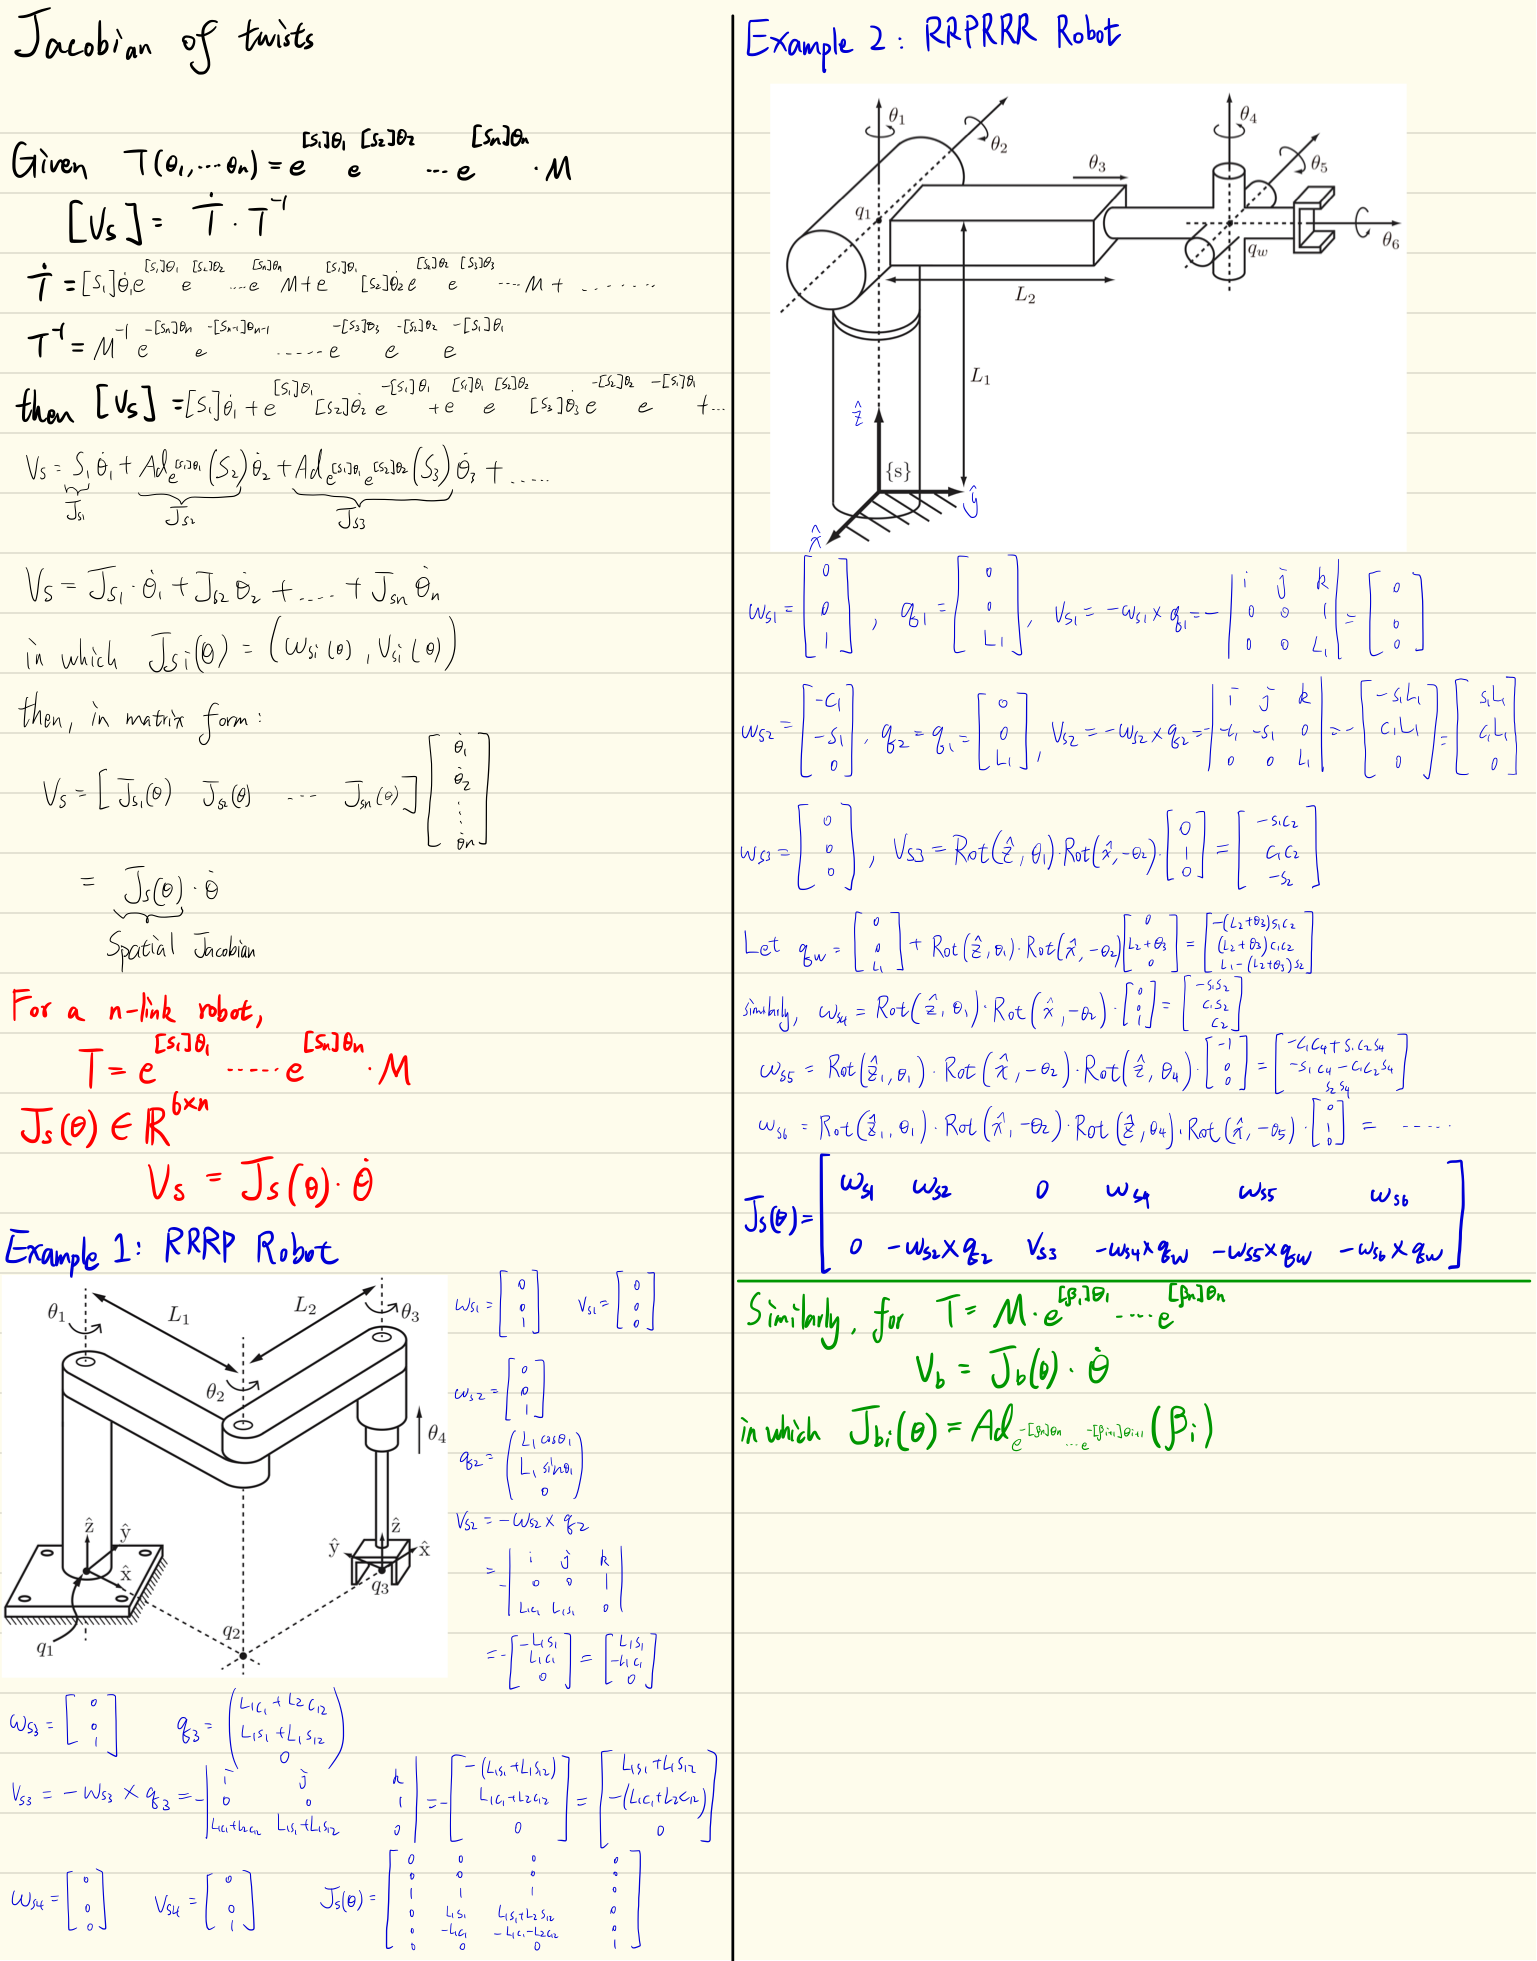 Jacobian of twists
Given T(θ₁,⋯θₙ) = e^{[S₁]θ₁} e^{[S₂]θ₂} ⋯ e^{[Sₙ]θₙ} · M
[Vs] = Ṫ · T⁻¹
Ṫ = [S₁]θ̇₁e^{[S₁]θ₁} e^{[S₂]θ₂} ⋯ e^{[Sₙ]θₙ} M + e^{[S₁]θ₁} [S₂]θ̇₂ e^{[S₂]θ₂} e^{[S₃]θ₃} ⋯ M + ⋯⋯
T⁻¹ = M⁻¹ e^{-[Sₙ]θₙ} e^{-[Sₙ₋₁]θₙ₋₁} ⋯⋯ e^{-[S₃]θ₃} e^{-[S₂]θ₂} e^{-[S₁]θ₁}
then [Vs] = [S₁]θ̇₁ + e^{[S₁]θ₁} [S₂]θ̇₂ e^{-[S₁]θ₁} + e^{[S₁]θ₁} e^{[S₂]θ₂} [S₃]θ̇₃ e^{-[S₂]θ₂} e^{-[S₁]θ₁} + ⋯
Vs = S₁θ̇₁ + Ad_{e^{[S₁]θ₁}}(S₂)θ̇₂ + Ad_{e^{[S₁]θ₁} e^{[S₂]θ₂}}(S₃)θ̇₃ + ⋯⋯
Js1 Js2 Js3
Vs = Js1 · θ̇₁ + Js2 θ̇₂ + ⋯⋯ + Jsn θ̇ₙ
in which Jsi(θ) = (ωsi(θ), Vsi(θ))
then, in matrix form:
Vs = [Js1(θ) Js2(θ) ⋯ Jsn(θ)] [θ̇₁ θ̇₂ ⋮ θ̇ₙ]
= Js(θ) · θ̇
Spatial Jacobian
For a n-link robot,
T = e^{[S₁]θ₁} ⋯⋯ e^{[Sₙ]θₙ} · M
Js(θ) ∈ R^{6×n}
Vs = Js(θ) · θ̇
Example 1: RRRP Robot
θ₁ L₁ L₂ θ₃
θ₂ θ₄
ẑ ŷ x̂ ŷ ẑ x̂
q₁ q₂ q₃
ωs1 = [0 0 1] Vs1 = [0 0 0]
ωs2 = [0 0 1]
q₂ = (L₁cosθ₁ L₁sinθ₁ 0)
Vs2 = -ωs2 × q₂
= -|i j k; 0 0 1; L₁c₁ L₁s₁ 0|
= -[-L₁s₁ L₁c₁ 0] = [L₁s₁ -L₁c₁ 0]
ωs3 = [0 0 1] q₃ = (L₁c₁+L₂c₁₂ L₁s₁+L₁s₁₂ 0)
Vs3 = -ωs3 × q₃ = -|i j k; 0 0 1; L₁c₁+L₂c₁₂ L₁s₁+L₁s₁₂ 0| = -[-(L₁s₁+L₁s₁₂) L₁c₁+L₂c₁₂ 0] = [L₁s₁+L₁s₁₂ -(L₁c₁+L₂c₁₂) 0]
ωs4 = [0 0 0] Vs4 = [0 0 1] Js(θ) = [0 0 0 0; 0 0 0 0; 1 1 1 0; 0 L₁s₁ L₁s₁+L₂s₁₂ 0; 0 -L₁c₁ -L₁c₁-L₂c₁₂ 0; 0 0 0 1]
Example 2: RRPRRR Robot
θ₁ θ₂ θ₃ θ₄ θ₅ θ₆
q₁ q_w
L₂
L₁
ẑ {s} ŷ x̂
ωs1 = [0 0 1], q₁ = [0 0 L₁], Vs1 = -ωs1 × q₁ = -|i j k; 0 0 1; 0 0 L₁| = [0 0 0]
ωs2 = [-c₁ -s₁ 0], q₂ = q₁ = [0 0 L₁], Vs2 = -ωs2 × q₂ = -|i j k; -c₁ -s₁ 0; 0 0 L₁| = -[-s₁L₁ c₁L₁ 0] = [s₁L₁ c₁L₁ 0]
ωs3 = [0 0 0], Vs3 = Rot(ẑ, θ₁)·Rot(x̂, -θ₂)·[0 1 0] = [-s₁c₂ c₁c₂ -s₂]
Let q_w = [0 0 L₁] + Rot(ẑ, θ₁)·Rot(x̂, -θ₂)[0 L₂+θ₃ 0] = [-(L₂+θ₃)s₁c₂ (L₂+θ₃)c₁c₂ L₁-(L₂+θ₃)s₂]
similarly, ωs4 = Rot(ẑ, θ₁)·Rot(x̂, -θ₂)·[0 0 1] = [-s₁s₂ c₁s₂ c₂]
ωs5 = Rot(ẑ₁, θ₁)·Rot(x̂, -θ₂)·Rot(ẑ, θ₄)·[-1 0 0] = [-c₁c₄+s₁c₂s₄ -s₁c₄-c₁c₂s₄ s₂s₄]
ωs6 = Rot(ẑ₁, θ₁)·Rot(x̂, -θ₂)·Rot(ẑ, θ₄)·Rot(x̂, -θ₅)·[0 1 0] = ⋯⋯
Js(θ) = [ωs1 ωs2 0 ωs4 ωs5 ωs6; 0 -ωs2×q₂ Vs3 -ωs4×q_w -ωs5×q_w -ωs6×q_w]
Similarly, for T = M · e^{[β₁]θ₁} ⋯⋯ e^{[βₙ]θₙ}
V_b = J_b(θ) · θ̇
in which J_bi(θ) = Ad_{e^{-[βₙ]θₙ} ⋯ e^{-[βᵢ₊₁]θᵢ₊₁}}(βᵢ)